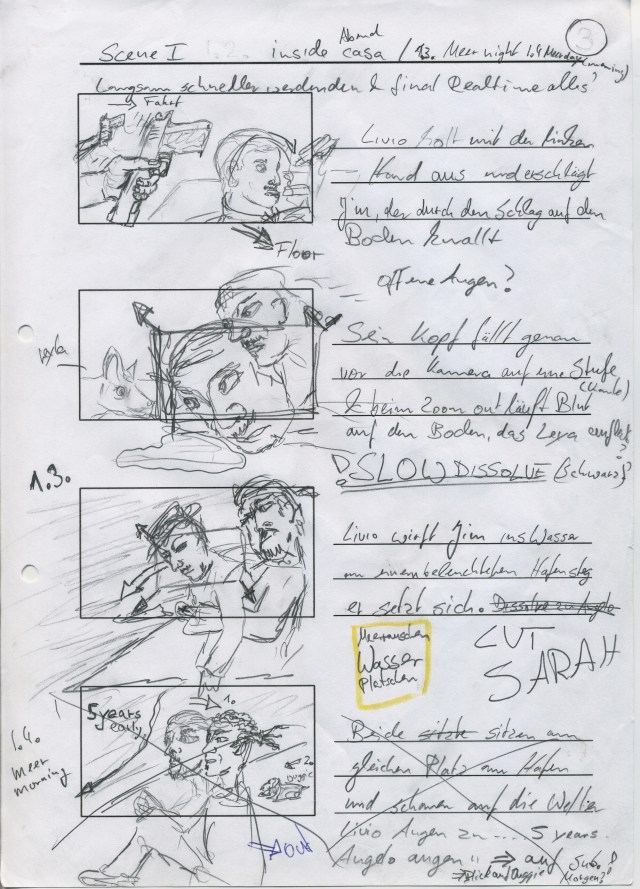 3
Abend
Scene I inside casa / 13. Meer night 1.4 Meer day (morning)
Langsam schneller werdenden & final Realtime alles?
→ Fahrt
Livio holt mit der linken
Hand aus und erschlägt
Jim, der durch den Schlag auf den
Boden knallt
Floor
offene Augen?
Sein Kopf fällt genau
vor die Kamera auf eine Stufe
& beim Zoom out läuft Blut
auf den Boden, das Leya
?
1.3.
SLOW DISSOLVE (Schwarz)?
Livio wirft Jim ins Wasser
an einem beleuchteten Hafensteg
er setzt sich. Dissolve zu Angelo
Meerrauschen
Wasser
Platschen
CUT
SARAH
5 years
early
→ 1.
← 2.
Doggie
1.4.
Meer
morning
Beide sitzte sitzen am
gleichen Platz am Hafen
und schauen auf die Wellen
Livio Augen zu .... 5 years.
Angelo augen " ⇒ auf
⇒ Blick auf Doggie
Morgen?